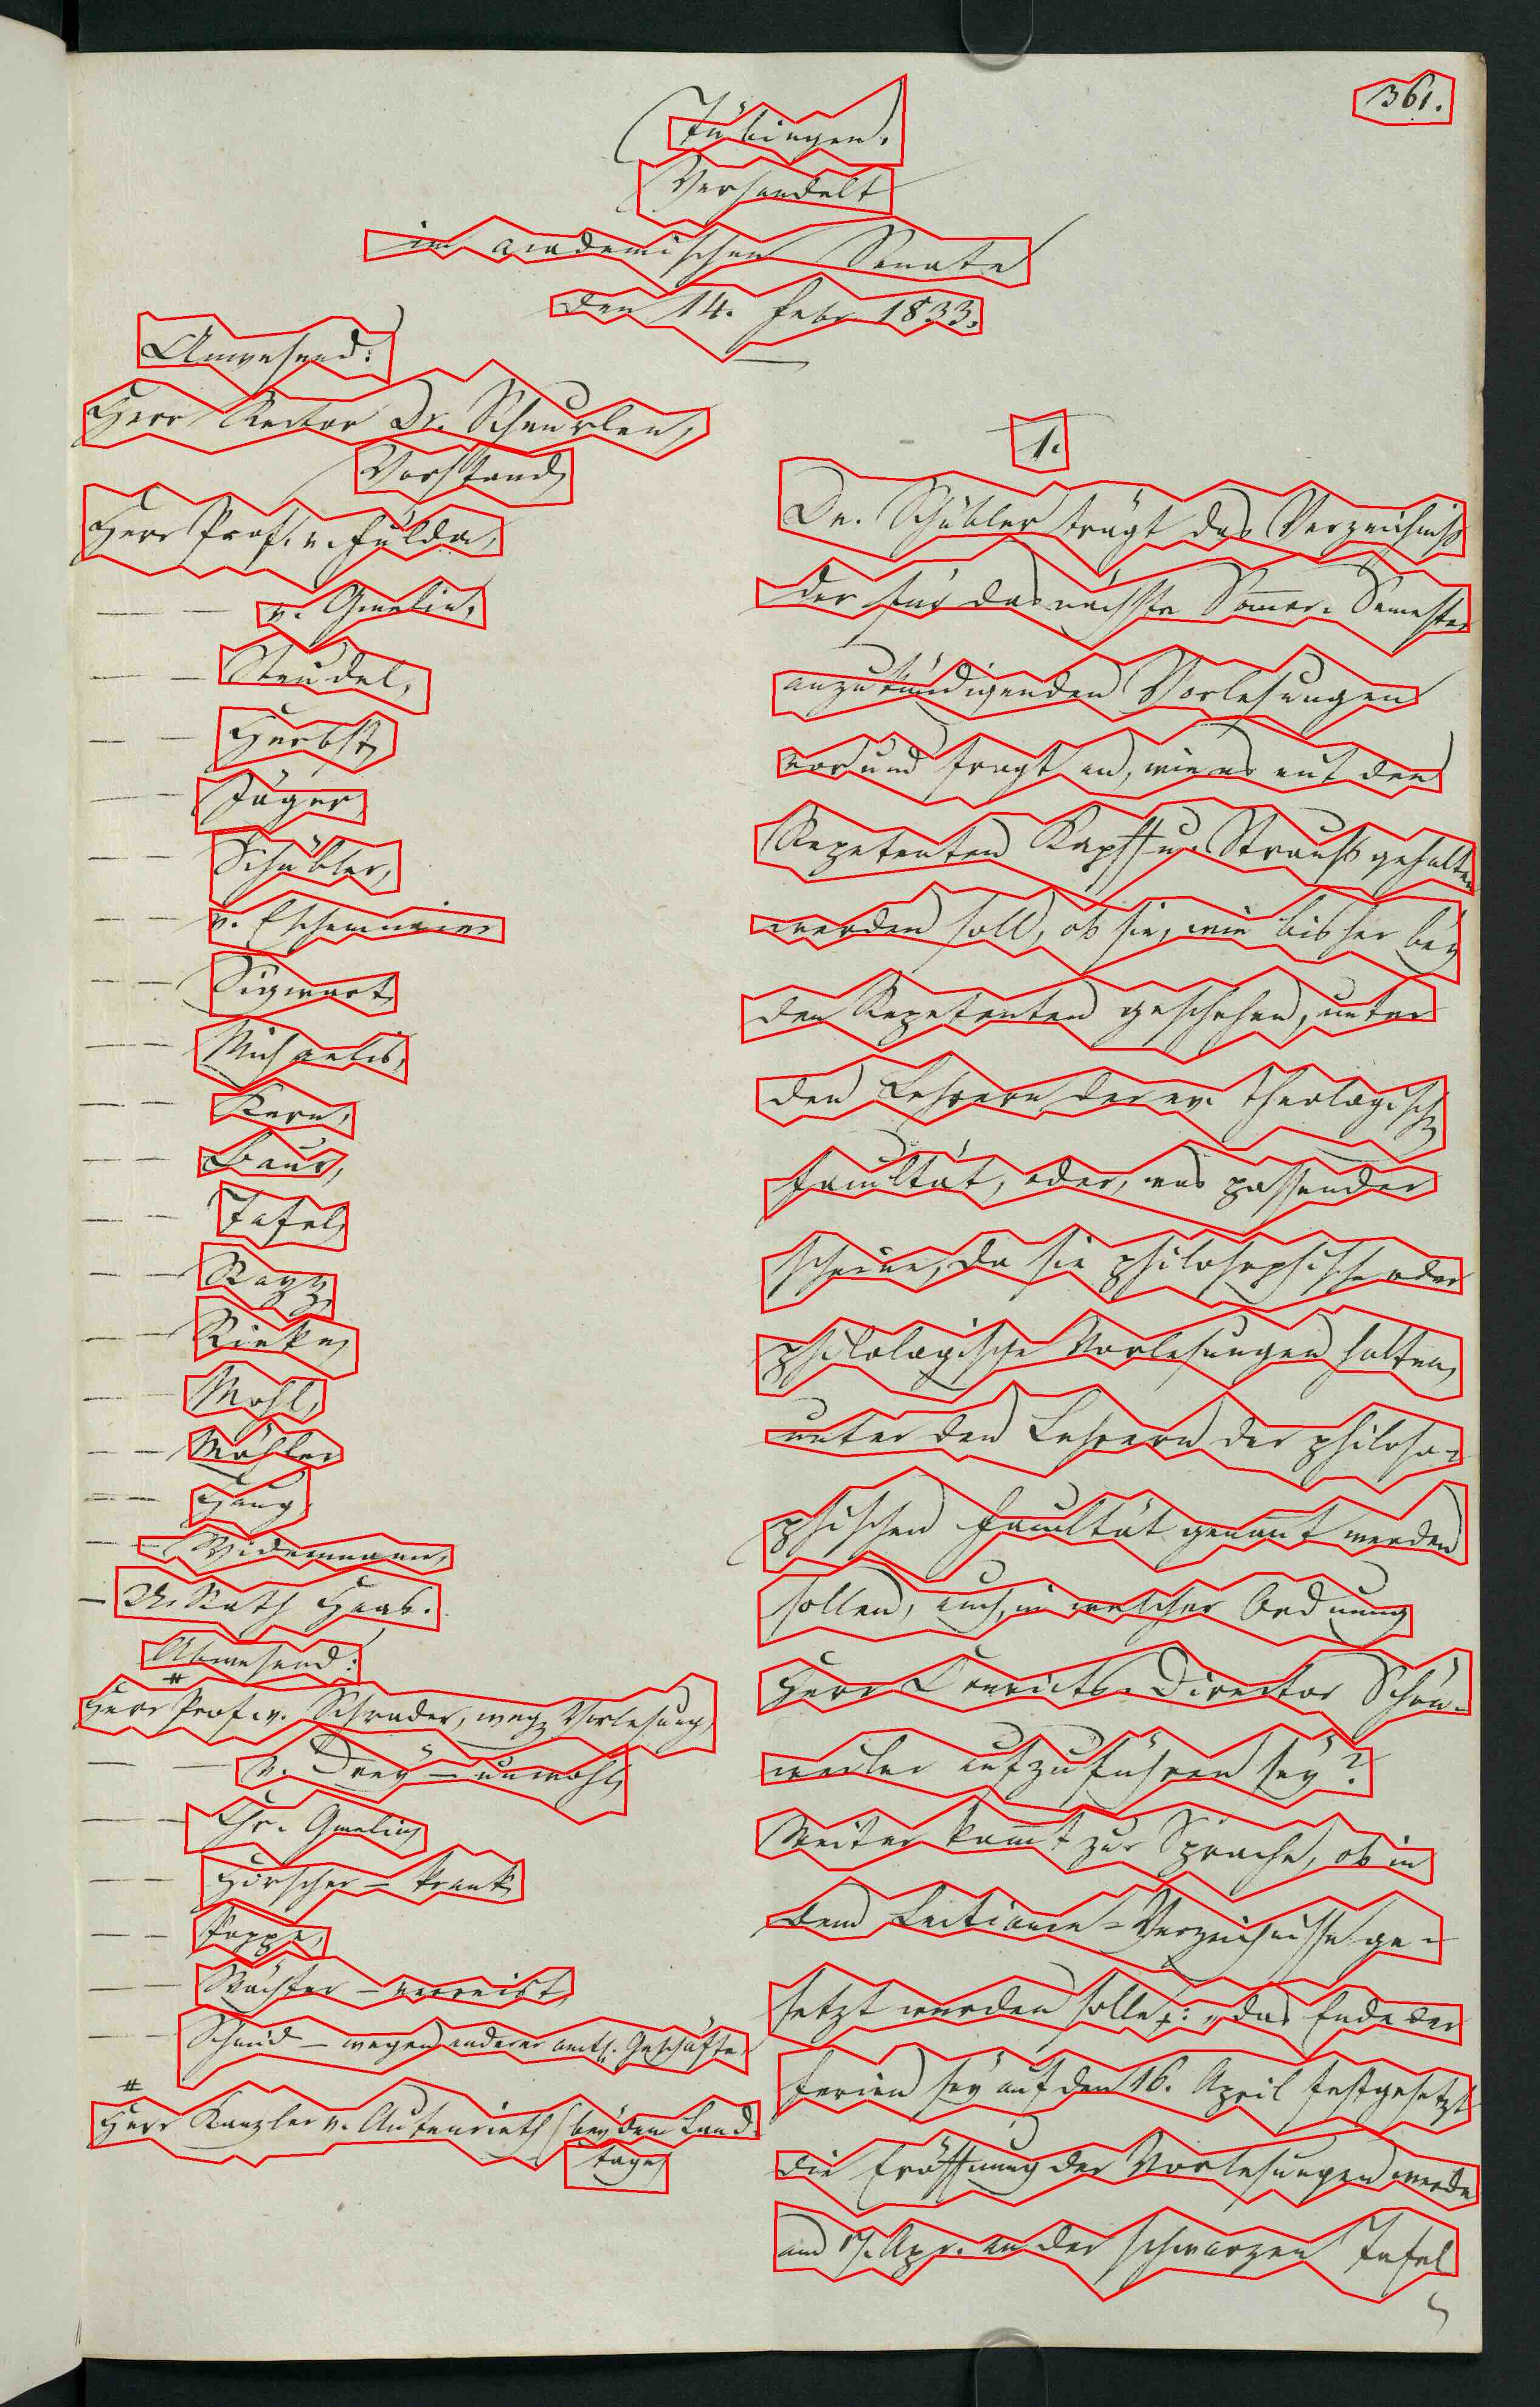 361.
Tübingen.
Verhandelt
im academischen Senate
den 14. Febr. 1833.
Anwesend:
Herr Rector Dr. Scheurlen,
Vorstand,
Herr Prof. v. Fulda,
— — v. Gmelin,
— — Steudel,
— — Herbst,
— — Jäger,
— — Schübler,
— — v. Eschenmaier
— — Sigwart,
— — Michaelis,
— — Kern,
— — Baur,
— — Tafel,
— — Rapp,
— — Riecke,
— — Mohl,
— — Möhler
— — Haug,
— — Widenmann,
— U. Rath Haab.
Abwesend:
# Herr Prof. v. Schrader, weg. Vorlesung,
— — v. Drey – unwohl,
— — Chr. Gmelin,
— — Hirscher – krank,
— — Poppe,
— — Wächter – verreist,
— — Schmid – wegen anderer amtl. Geschäfte,
# Herr Kanzler v. Autenrieth (bey dem Land-
tage)
1.
Dr. Schübler trägt das Verzeichniß
der für das nächste Som̅er-Semester
anzukündigenden Vorlesungen
vor und fragt an, wie es mit den
Repetenten Kapff u. Strauß gehalten
werden soll, ob sie, wie bisher bey
den Repetenten geschehen, unter
den Lehrern der ev. theologisch.
Facultät, oder, was passender
scheine, da sie philosophische oder
philologische Vorlesungen halten,
unter den Lehrern der philoso-
phischen Facultät genan̅t werden
sollen, auch, in welcher Ordnung
Herr Convicts-Director Schön-
weiler aufzuführen sey?
Weiter kom̅t zur Sprache, ob in
dem Lectionen-Verzeichnisse ge-
setzt werden solle: „das Ende der
Ferien sey auf den 16. April festgesetzt
die Eröffnung der Vorlesungen werde
am 17. Apr. an der schwarzen Tafel